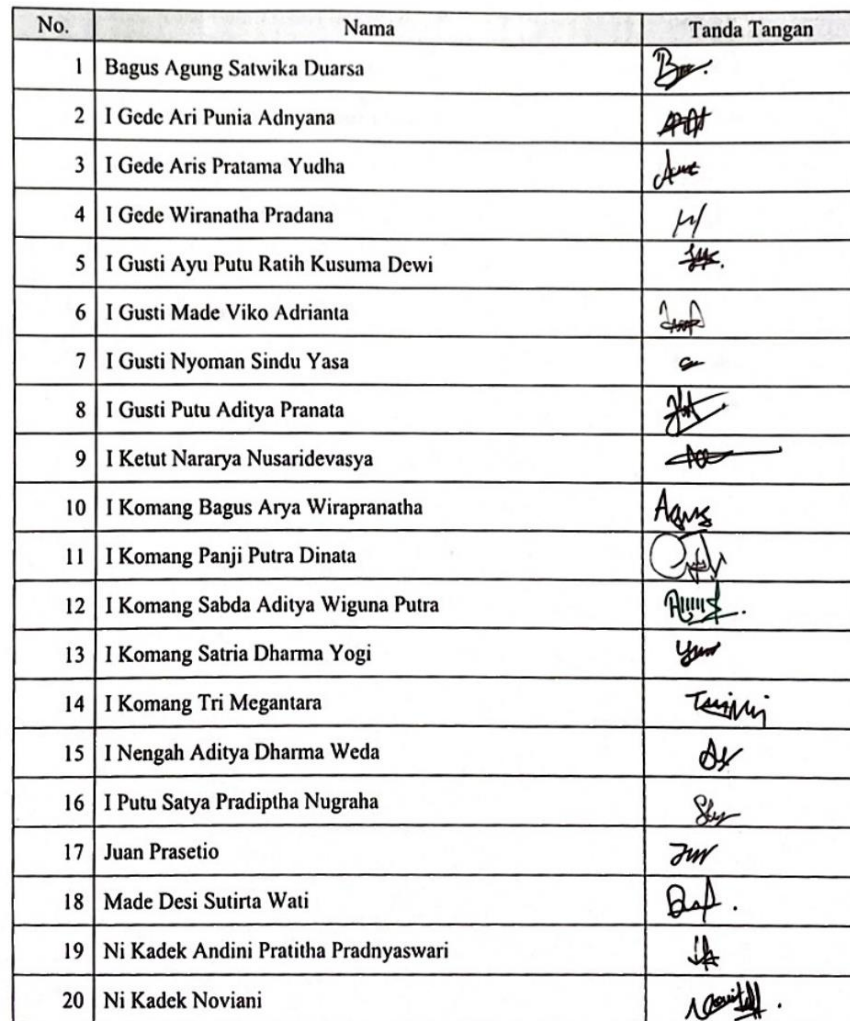 No. Nama Tanda Tangan
1 Bagus Agung Satwika Duarsa
2 I Gede Ari Punia Adnyana
3 I Gede Aris Pratama Yudha
4 I Gede Wiranatha Pradana
5 I Gusti Ayu Putu Ratih Kusuma Dewi
6 I Gusti Made Viko Adrianta
7 I Gusti Nyoman Sindu Yasa
8 I Gusti Putu Aditya Pranata
9 I Ketut Nararya Nusaridevasya
10 I Komang Bagus Arya Wirapranatha
11 I Komang Panji Putra Dinata
12 I Komang Sabda Aditya Wiguna Putra
13 I Komang Satria Dharma Yogi
14 I Komang Tri Megantara
15 I Nengah Aditya Dharma Weda
16 I Putu Satya Pradiptha Nugraha
17 Juan Prasetio
18 Made Desi Sutirta Wati
19 Ni Kadek Andini Pratitha Pradnyaswari
20 Ni Kadek Noviani